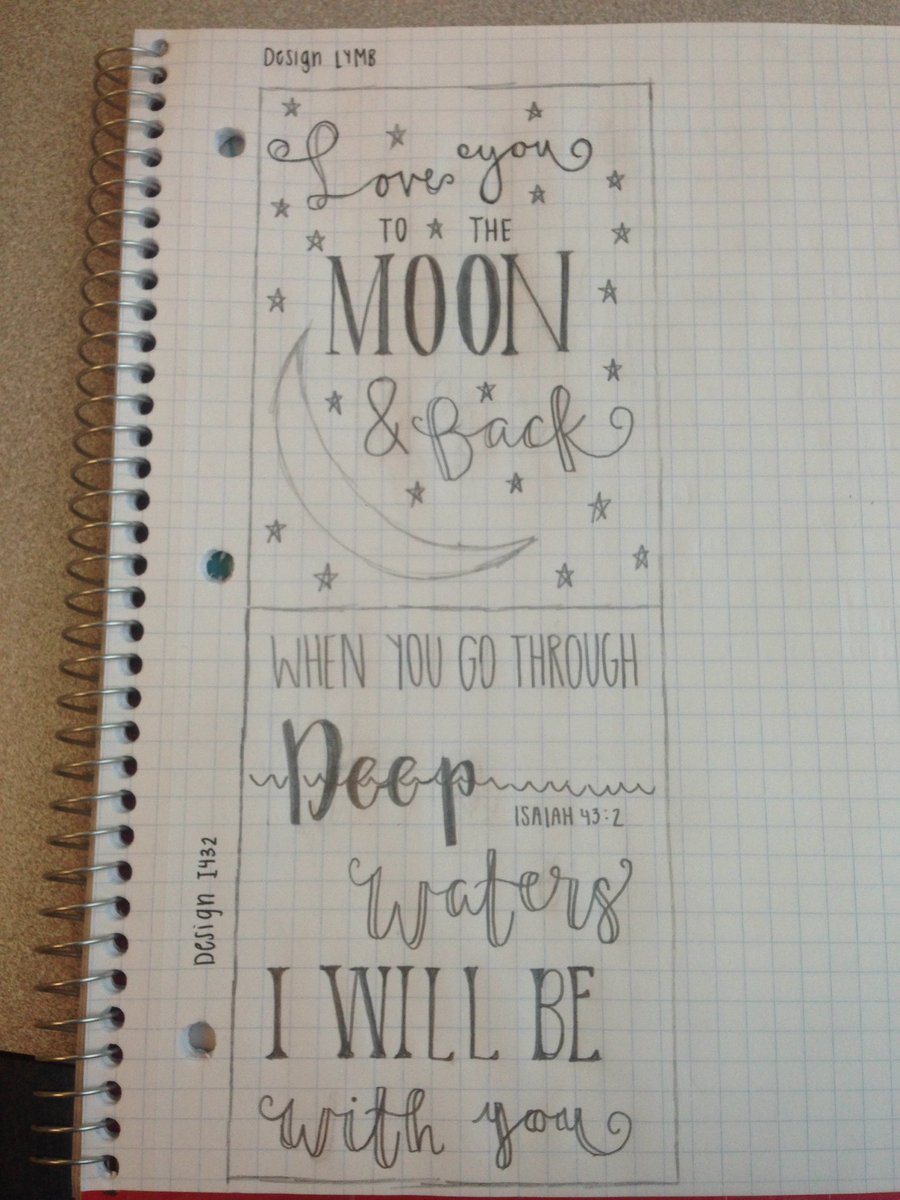 Design LYMB
Love you
TO THE
MOON
& Back
WHEN YOU GO THROUGH
Deep
ISAIAH 43:2
waters
I WILL BE
with you
Design I432